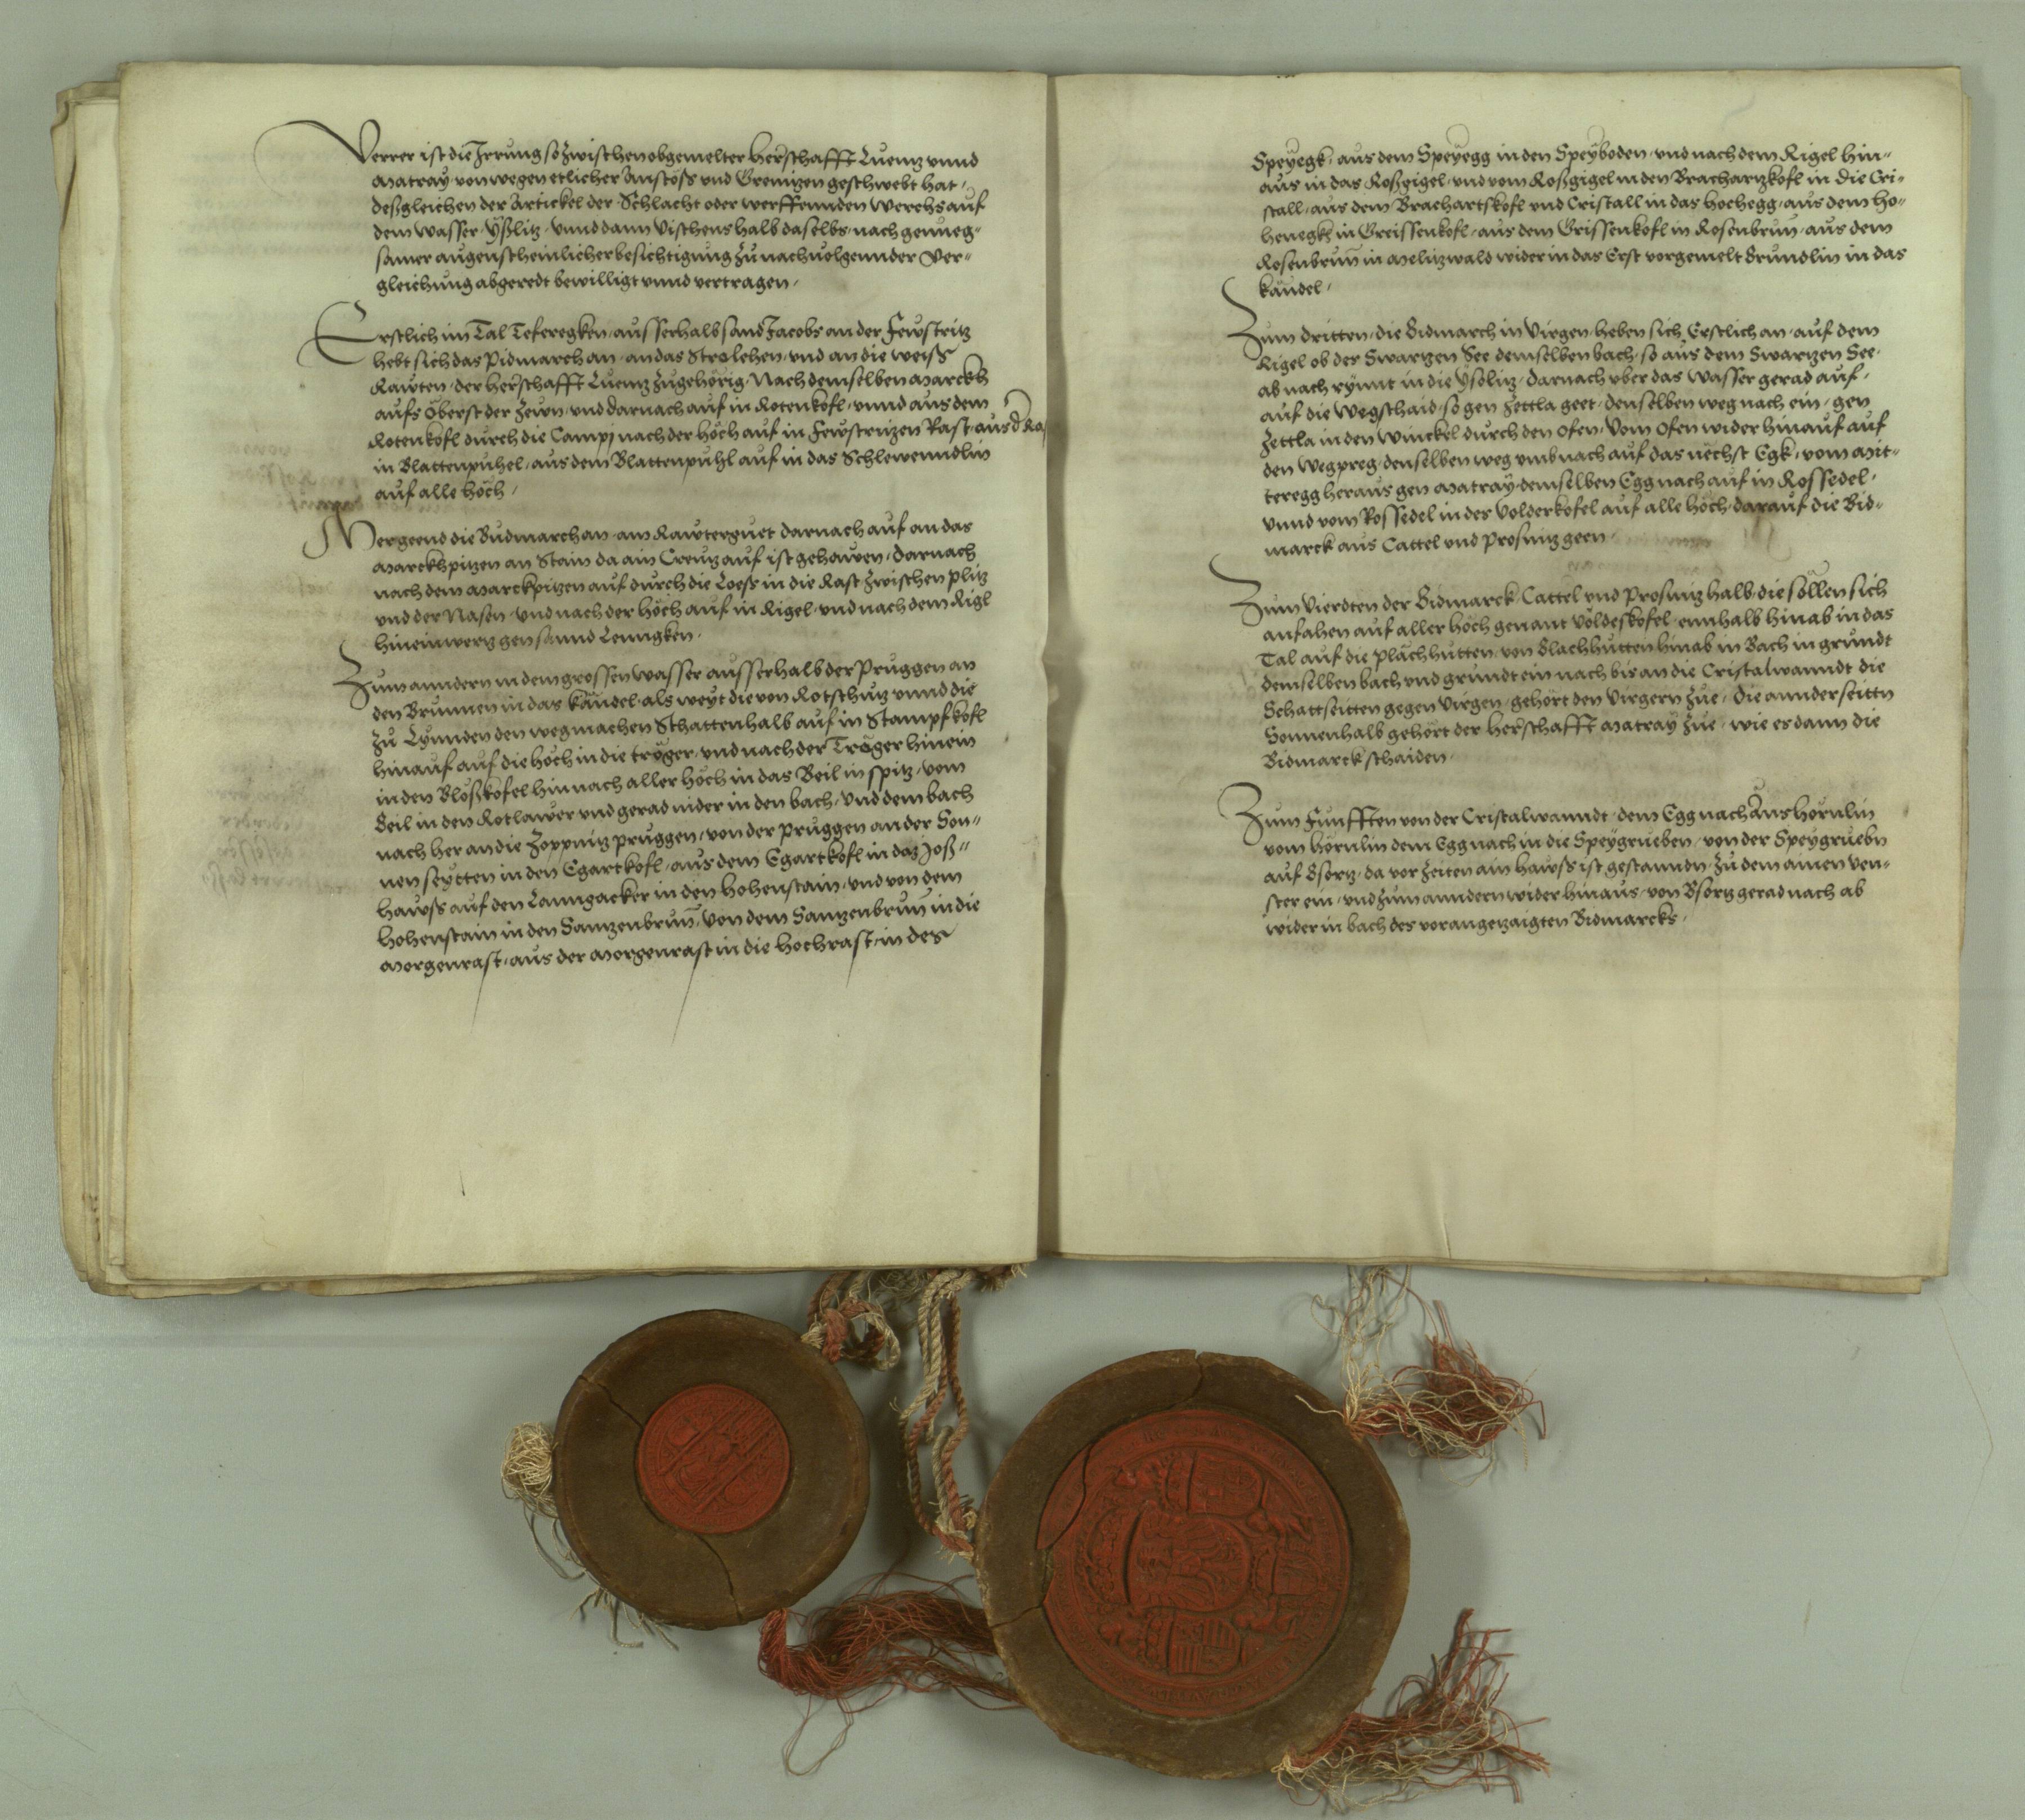 Verrer ist die Irrung so zwischen obgemelter herschafft Luenz vnnd
Matray von wegen etlicher Anstöss vnd Grenitzen geschwebt hat,
deßgleichen der Artickel der Schlacht oder werffennden werchs auf
dem wasser Ÿßlitz, vnnd dann vischens halb daselbs, nach genueg=
samer augenscheinlicher besichtigung zu nachuolgennder Ver=
gleichung abgeredt bewilligt vnnd vertragen,
Erstlich im Tal Teferegken, ausserhalb sand Jacobs an der Fewstritz
hebt sich das Pidmarch an, an das Strolehen, vnd an die weiss
Rawten, der herschafft Luenz zugehörig, Nach demselben Marckh
aufs öberst der Zewn, vnd darnach auf in Rotenkofl, vnnd aus dem
Rotenkofl durch die Campi nach der höch auf in Fewstritzen Rast, aus d Ras
in Blattenpuhel, aus dem Blattenpuhl auf in das Schlewenndlin
auf alle höch,
Mer geend die Budmarch an, am Rawterguet darnach auf an das
Marckhpitzen an Stain da ain Creutz auf ist gehawen, darnach
nach dem Marckpitzen auf durch die Loess in die Rast zwischen plitz
vnd der Nasen, vnd nach der höch auf in Rigel, vnd nach dem Rigl
hineinwertz gen sannd Lenngken,
Zum anndern in dem grossen wasser ausserhalb der Pruggen an
den Brunnen in das kändel, als weyt die von Rotschutz vnnd die
zu Lynnden den weg machen Schattenhalb auf in Stampfkofl
hinauf auf die höch in die tröger, vnd nach der Tröger hinein
in den Bloßkofel hin nach aller höch in das Beil in spitz, vom
Beil in den Rotlawer vnd gerad nider in den bach, vnd dem bach
nach her an die Zoppnitz pruggen, von der pruggen an der Son=
nen seytten in den Egartkofl, aus dem Egartkofl in daz Joß=
hawss auf den Lanngacker in den hohenstain, vnd von dem
hohenstain in den Santzenbrun, von dem Santzenbrun in die
Morgenrast, aus der Morgenrast in die hochrast, in des
Speyegk, aus dem Speyegg in den Speyboden, vnd nach dem Rigel hin=
aus in das Roßgigel, vnd vom Roßgigel in den Brachartzkofl in die Cri=
stall, aus dem Brachartskofl vnd Cristall in das hochegg, aus dem ho=
henegkh in Greissenkofl, aus dem Grissenkofl in Rosenbrun, aus dem
Rosenbrun in Melitzwald wider in das Erst vorgemelt Brundlin in das
kändel,
Zum dritten, die Bidmarch in Virgen, heben sich Erstlich an, auf dem
Rigel ob der Swartzen See demselben bach, so aus dem Swartzen See,
ab nach rynnt in die Ysolitz, darnach vber das wasser gerad auf,
auf die wegschaid, so gen Zettla geet, denselben weg nach ein, gen
Zettla in den winckel durch den ofen, vom ofen wider hinauf auf
den wegpreg, denselben weg vmb nach auf das nechst Egk, vom Mit=
teregg heraus gen Matray, demselben Egg nach auf in Rossedel,
vnnd vom Rossedel in des Volderkofel auf alle höch, darauf die Bid=
marck aus Cattel vnd Prosnitz geen,
Zum Vierdten der Bidmarck Cattel vnd Prosnitz halb, die söllen sich
anfahen auf aller höch genant Völdeskofel, ennhalb hinab in das
Tal auf die plächhutten, von Blachhutten hinab in Bach in grundt
demselben bach vnd grundt ein nach bis an die Cristalwanndt die
Schattseitten gegen Virgen, gehört den Virgern zue, Die annder seittn
Sonnenhalb gehört der herschafft Matray zue, wie es dann die
Bidmarck schaiden,
Zum Funfften von der Cristalwanndt, dem Egg nach Ans hörnlin
vom hörnlin dem Egg nach in die Speygrueben, von der Speygruebn
auf Bsortz, da vor zeiten ain hawss ist gestanndn, zu dem ainen ven=
ster ein, vnd zum anndern wider hinaus, von Bsortz gerad nach ab
wider in bach des vorangezaigten Bidmarcks,